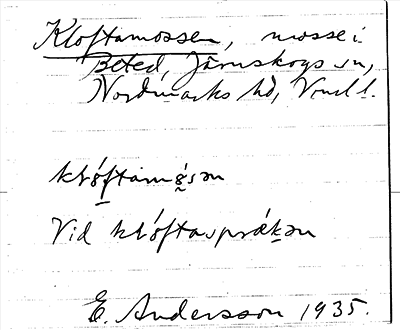 Kloftamossen, mosse i
Beted, Järnskogs sn,
Nordmarks hd, Vrml l.
klòftamỳsən
Vid klóftaspräkən
E. Andersson 1935.